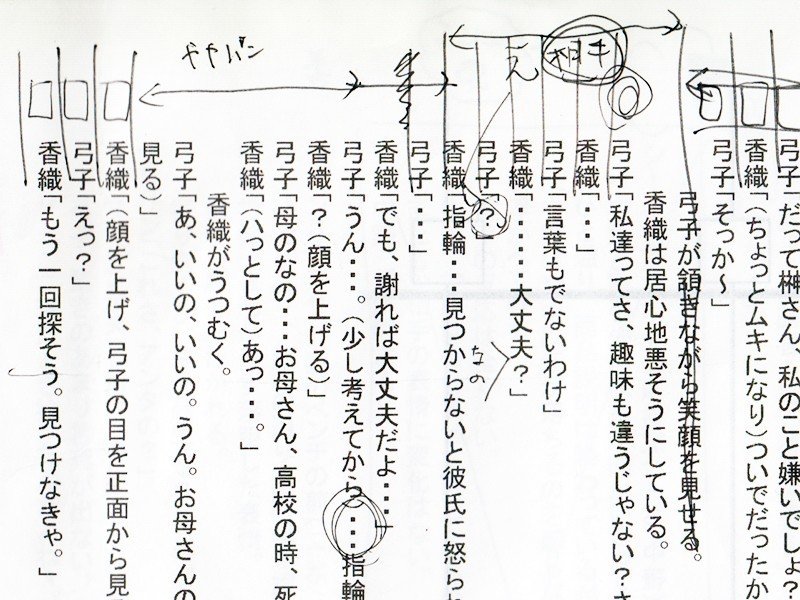 弓子「だって榊さん、私のこと嫌いでしょ?
香織「(ちょっとムキになり)ついでだったか
弓子「そっか~」
弓子が頷きながら笑顔を見せる。
香織は居心地悪そうにしている。
弓子「私達ってさ、趣味も違うじゃない?さ
香織「・・・」
弓子「言葉もでないわけ」
香織「・・・・・・大丈夫?」
弓子「?」
香織「指輪・・・見つからないと彼氏に怒られ
なの
弓子「・・・」
香織「でも、謝れば大丈夫だよ・・・」
弓子「うん・・・。(少し考えてから)・・・指輪
香織「?(顔を上げる)」
弓子「母のなの・・・お母さん、高校の時、死
香織「(ハっとして)あっ・・・。」
香織がうつむく。
弓子「あ、いいの、いいの。うん。お母さんの
見る)」
香織「(顔を上げ、弓子の目を正面から見
弓子「えっ?」
香織「もう一回探そう。見つけなきゃ。」